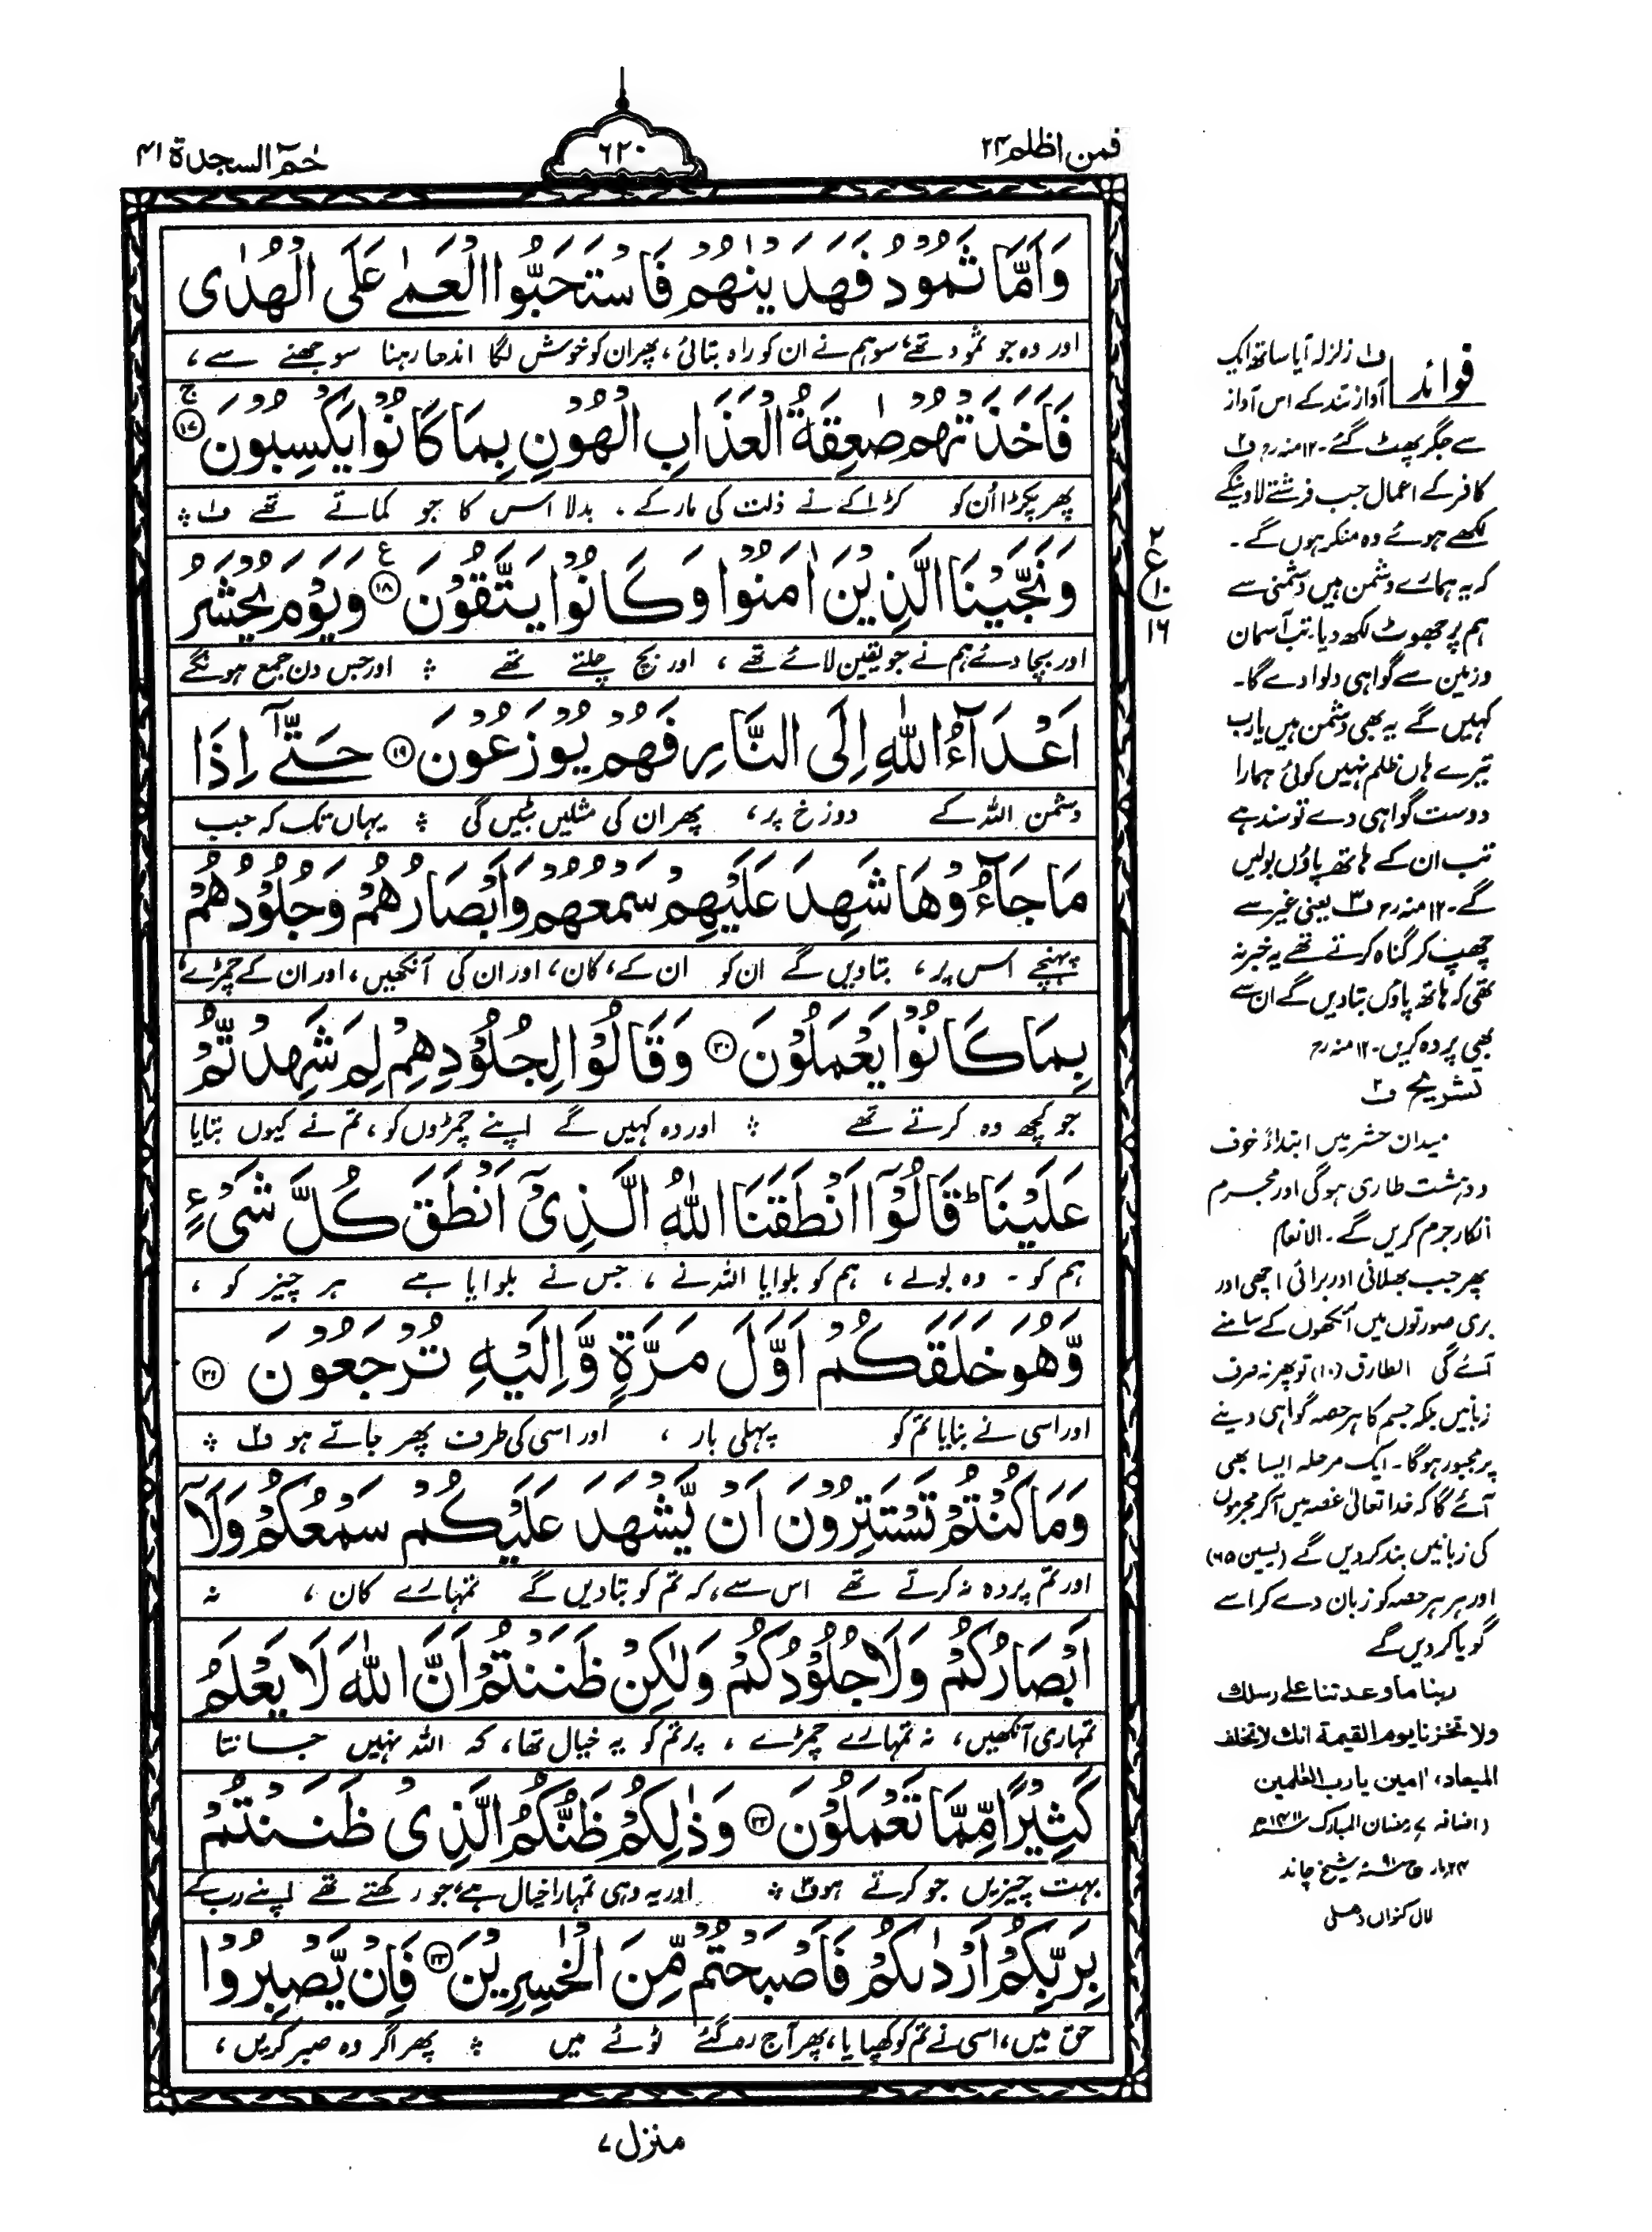 فمن اظلم ۲۴
۶۲۰
حٰمٓ السجدة ۴۱
وَاَمَّا ثَمُوْدُ فَهَدَيْنٰهُمْ فَاسْتَحَبُّوا الْعَمٰى عَلَى الْهُدٰى
اور وہ جو ثمود تھے، سو ہم نے ان کو راہ بتائی، پھر ان کو خوش لگا اندھا رہنا سوجھنے سے،
فَاَخَذَتْهُمْ صٰعِقَةُ الْعَذَابِ الْهُوْنِ بِمَا كَانُوْا يَكْسِبُوْنَ ۚ ⑰
پھر پکڑا اُن کو کڑاکے نے ذلت کی مار کے۔ بدلا اس کا جو کماتے تھے ف۱ ؞
وَنَجَّيْنَا الَّذِيْنَ اٰمَنُوْا وَكَانُوْا يَتَّقُوْنَ ⑱ ع وَيَوْمَ يُحْشَرُ
اور بچا دئے ہم نے جو یقین لائے تھے، اور بچ چلتے تھے ؞ اور جس دن جمع ہونگے
اَعْدَآءُ اللّٰهِ اِلَى النَّارِ فَهُمْ يُوْزَعُوْنَ ⑲ حَتّٰٓى اِذَا
دشمن اللہ کے دوزخ پر، پھر ان کی مثلیں بٹیں گی ؞ یہاں تک کہ جب
مَا جَآءُوْهَا شَهِدَ عَلَيْهِمْ سَمْعُهُمْ وَاَبْصَارُهُمْ وَجُلُوْدُهُمْ
پہنچے اس پر، بتا دیں گے ان کو ان کے، کان، اور ان کی آنکھیں، اور ان کے چمڑے،
بِمَا كَانُوْا يَعْمَلُوْنَ ⑳ وَقَالُوْا لِجُلُوْدِهِمْ لِمَ شَهِدْتُّمْ
جو کچھ وہ کرتے تھے ؞ اور وہ کہیں گے اپنے چمڑوں کو، تم نے کیوں بتایا
عَلَيْنَا ؕ قَالُوْٓا اَنْطَقَنَا اللّٰهُ الَّذِيْٓ اَنْطَقَ كُلَّ شَيْءٍ
ہم کو۔ وہ بولے، ہم کو بلوایا اللہ نے، جس نے بلوایا ہے ہر چیز کو،
وَّهُوَ خَلَقَكُمْ اَوَّلَ مَرَّةٍ وَّاِلَيْهِ تُرْجَعُوْنَ ㉑
اور اسی نے بنایا تم کو پہلی بار، اور اسی کی طرف پھر جاتے ہو ف۲ ؞
وَمَا كُنْتُمْ تَسْتَتِرُوْنَ اَنْ يَّشْهَدَ عَلَيْكُمْ سَمْعُكُمْ وَلَآ
اور تم پردہ نہ کرتے تھے اس سے، کہ تم کو بتا دیں گے تمہارے کان، نہ
اَبْصَارُكُمْ وَلَا جُلُوْدُكُمْ وَلٰكِنْ ظَنَنْتُمْ اَنَّ اللّٰهَ لَا يَعْلَمُ
تمہاری آنکھیں، نہ تمہارے چمڑے، پر تم کو یہ خیال تھا، کہ اللہ نہیں جانتا
كَثِيْرًا مِّمَّا تَعْمَلُوْنَ ㉒ وَذٰلِكُمْ ظَنُّكُمُ الَّذِيْ ظَنَنْتُمْ
بہت چیزیں جو کرتے ہو ف۳ ؞ اور یہ وہی تمہارا خیال ہے، جو رکھتے تھے اپنے رب کے
بِرَبِّكُمْ اَرْدٰىكُمْ فَاَصْبَحْتُمْ مِّنَ الْخٰسِرِيْنَ ㉓ فَاِنْ يَّصْبِرُوْا
حق میں، اسی نے تم کو کھپایا، پھر آج رہ گئے ٹوٹے میں ؞ پھر اگر وہ صبر کریں،
منزل ۷
۲
ع
۱۰
۱۶
فوائد
ف۱ زلزلہ آیا ساتھ ایک
آواز تند کے اس آواز
سے جگر پھٹ گئے۔۱۲ منہ رح ف۲
کافر کے اعمال جب فرشتے لاوینگے
لکھے ہوئے وہ منکر ہوں گے۔
کہ یہ ہمارے دشمن ہیں دشمنی سے
ہم پر جھوٹ لکھ دیا۔ تب آسمان
و زمین سے گواہی دلوا دے گا۔
کہیں گے یہ بھی دشمن ہیں یا رب
تیرے ہاں ظلم نہیں کوئی ہمارا
دوست گواہی دے تو سند ہے
تب ان کے ہاتھ پاؤں بولیں
گے۔۱۲ منہ رح ف۳ یعنی غیر سے
چھپ کر گناہ کرتے تھے یہ خبر نہ
تھی کہ ہاتھ پاؤں بتا دیں گے ان سے
بھی پردہ کریں۔۱۲ منہ رح
تشریح ف۲
میدان حشر میں ابتداءً خوف
و دہشت طاری ہوگی اور مجرم
انکار جرم کریں گے۔ الانعام
پھر جب بھلائی اور برائی اچھی اور
بری صورتوں میں آنکھوں کے سامنے
آئے گی الطارق (۱۰) تو پھر نہ صرف
زبانیں بلکہ جسم کا ہر حصہ گواہی دینے
پر مجبور ہوگا۔ ایک مرحلہ ایسا بھی
آئے گا کہ خدا تعالیٰ غصہ میں آکر مجرموں
کی زبانیں بند کردیں گے (یسین ۶۵)
اور ہر ہر حصہ کو زبان دے کر اسے
گویا کردیں گے
ربنا ما وعدتنا علی رسلك
ولا تخزنا یوم القیمة انك لا تخلف
المیعاد، اٰمین یا رب العٰلمین
(اضافہ ۷ رمضان المبارک ۱۴۱۱ھ
شیخ چاند
لال کنواں دھلی